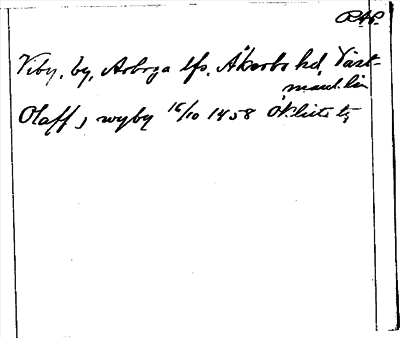 RAP.
Viby, by, Arboga lfs. Åkerbo hd Väst-
manl. län
Olaff j wyby 16/10 1458